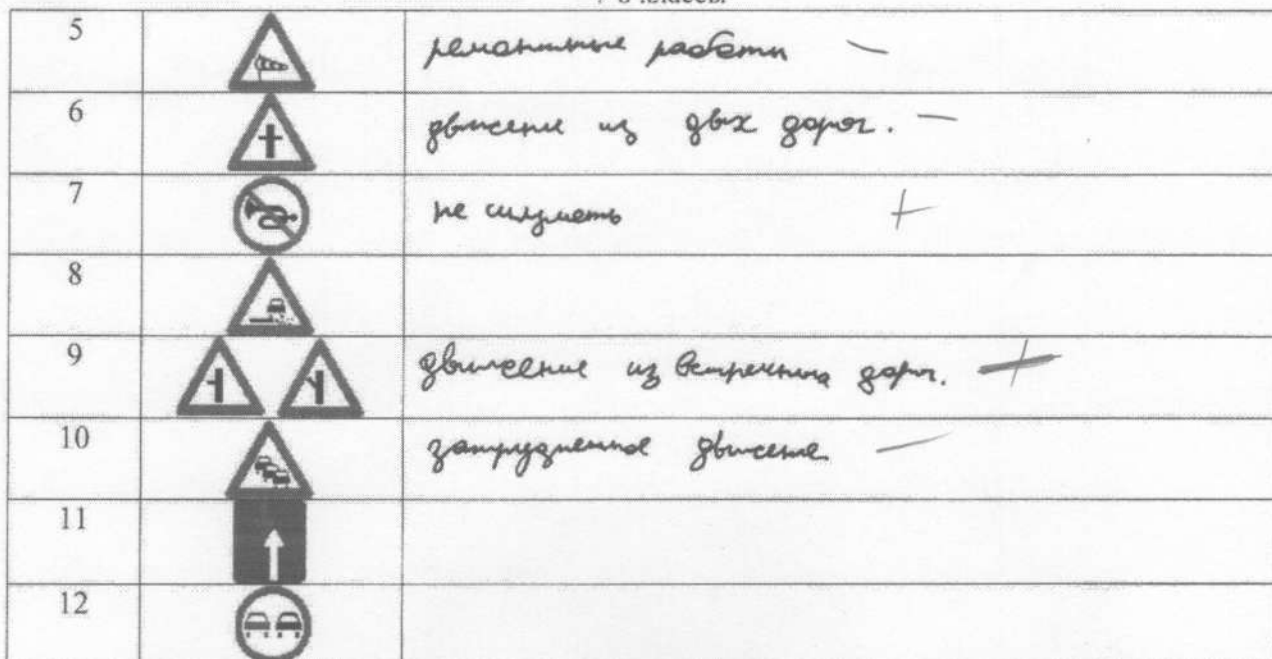 7-8 классы
5 ремонтные работы —
6 движение из двух дорог. —
7 не шуметь +
8
9 движение из встречных дорог. +
10 затрудненное движение —
11
12